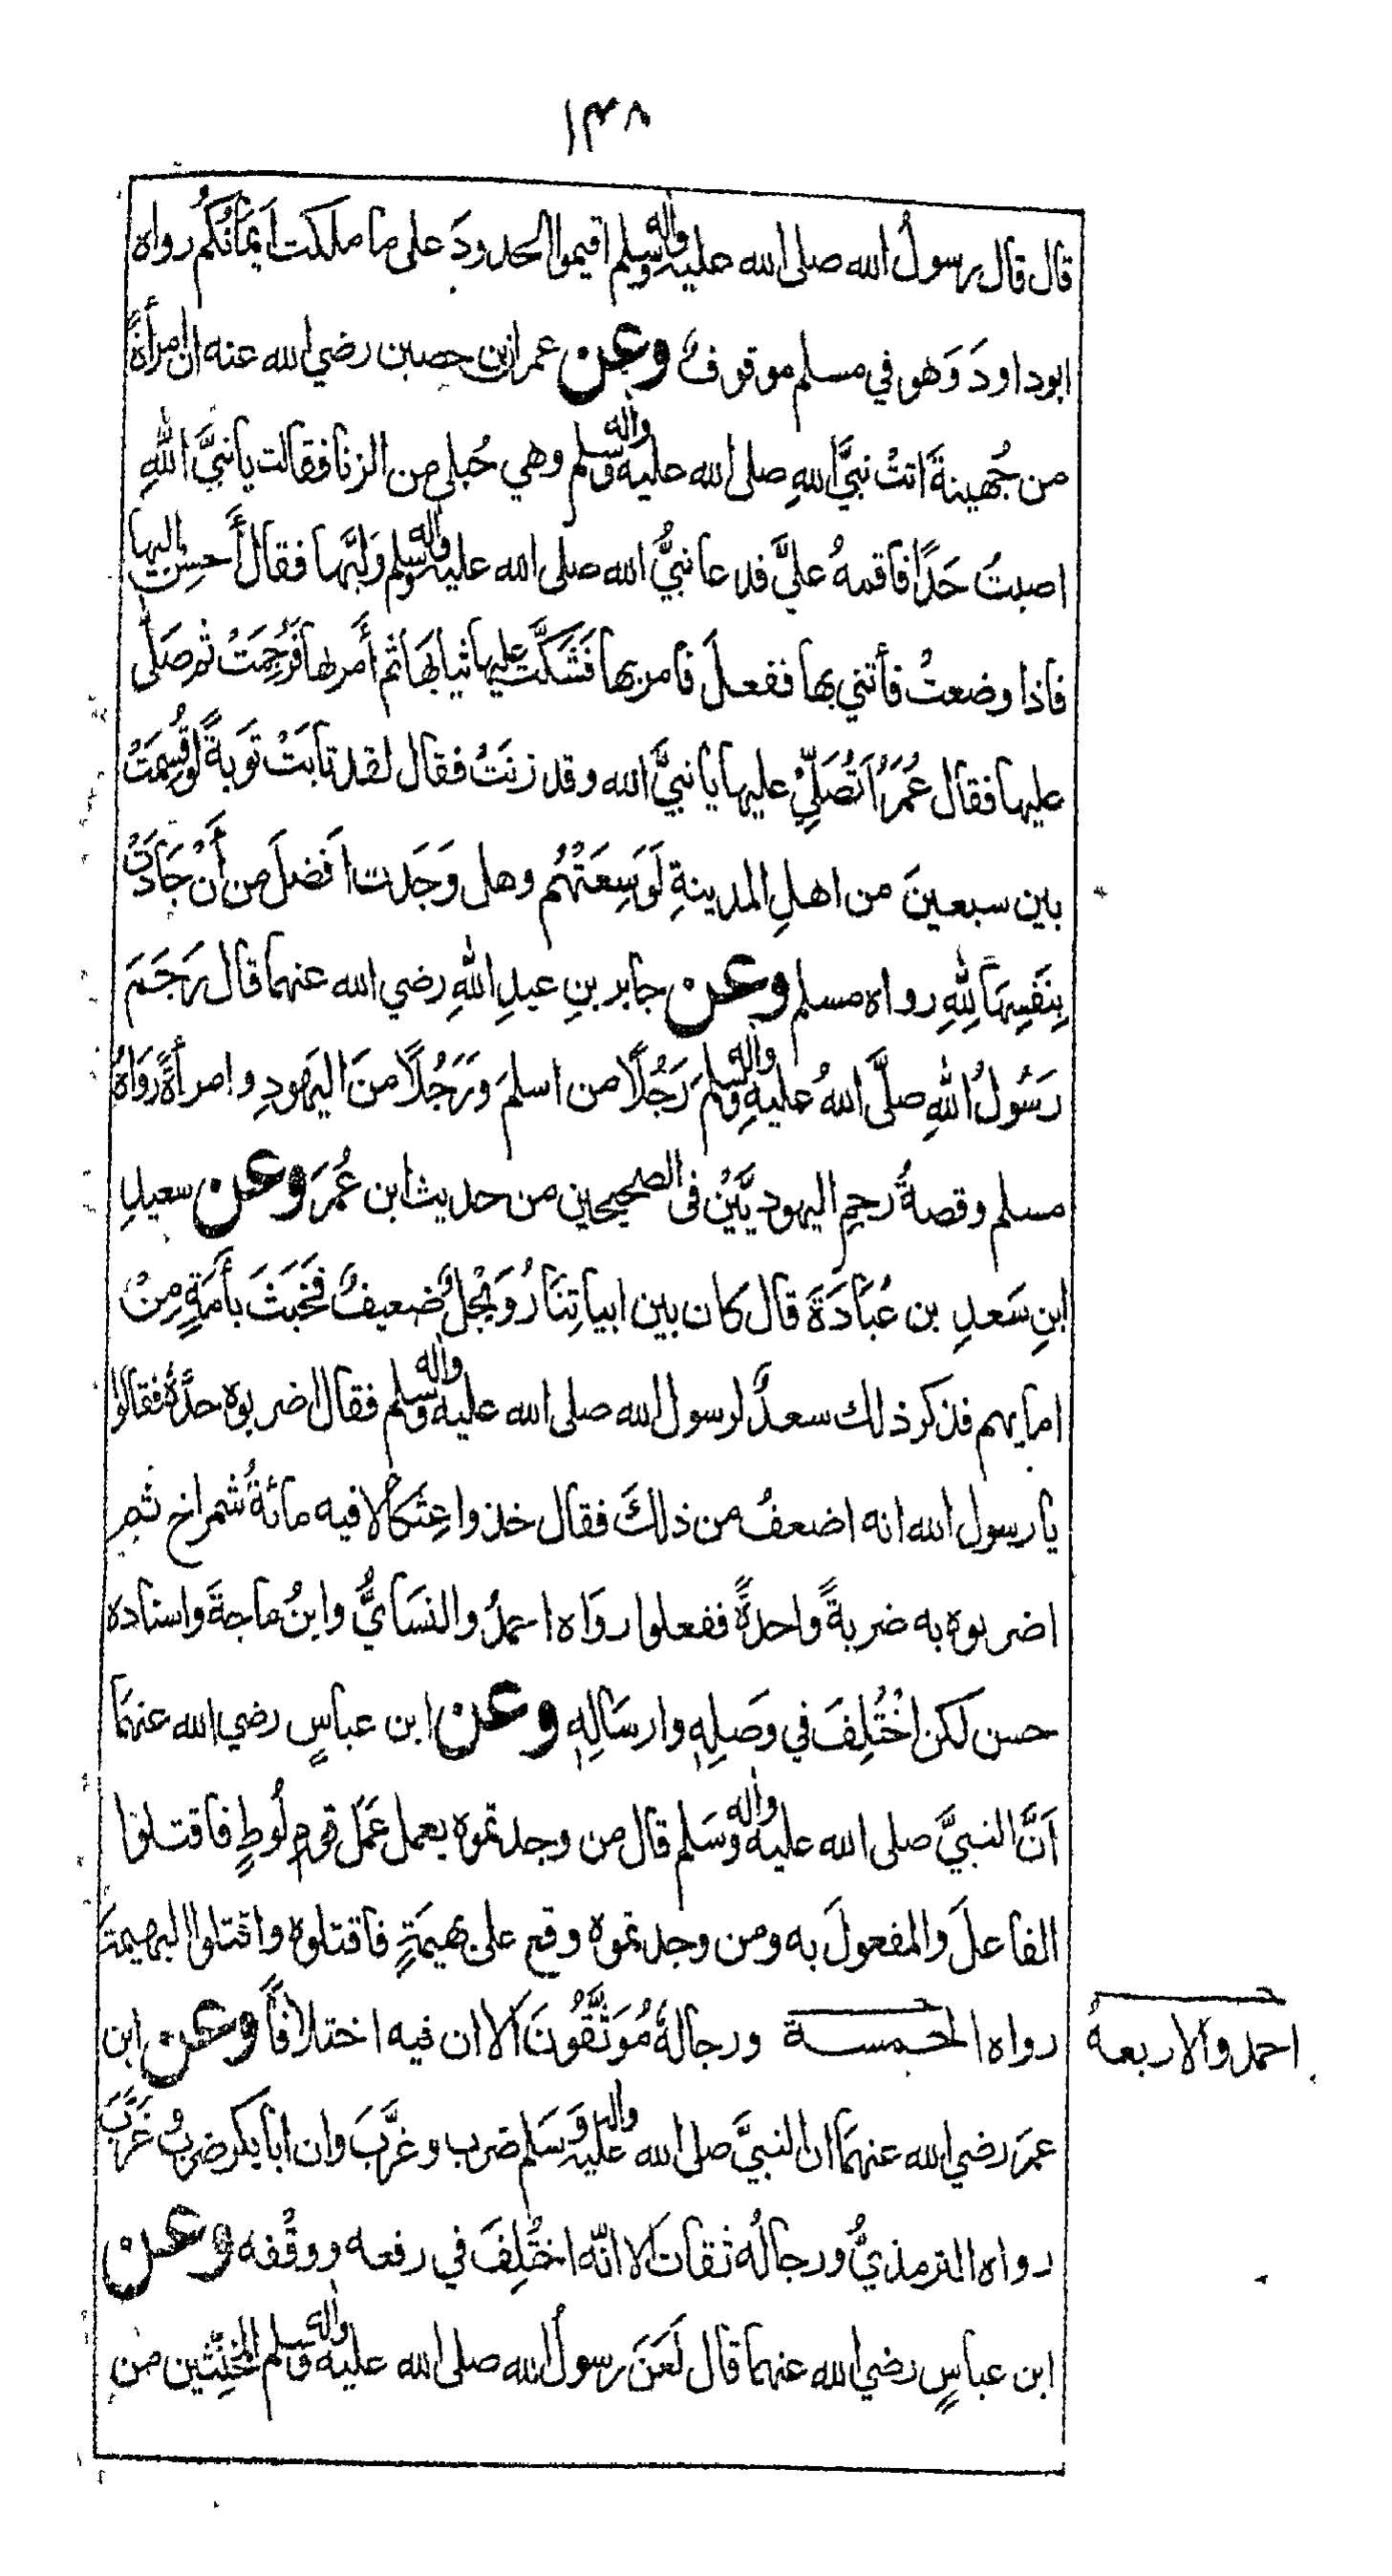 ١٣٨
قال قال رسولُ الله صلى الله عليه واله وسلم اقيموا الحدودَ على ما ملكت اَيمَانُكُم رواه
ابوداودَ وَهو في مسلم موقوفٌ وعن عمران بن حصين رضي الله عنه ان امرأةً
من جُهينةَ اتتْ نبيَّ اللهِ صلى الله عليه واله وسلم وهي حُبلى من الزنا فقالت يا نبيَّ اللهِ
اصبتُ حَدًّا فاقمهُ عليَّ فدعا نبيُّ الله صلى الله عليه واله وسلم وَلِيَّها فقال أَحسِن اليها
فاذا وضعتْ فأتني بها ففعلَ فامر بها فَشَكَّتْ عليها ثيابهَا ثم أَمر بها فَرُجِمَتْ ثم صَلى
عليها فقال عُمَرُ اَتُصَلِّيْ عليها يا نبيَّ الله وقد زنَتْ فقال لقد تابَتْ تَوبَةً لوقُسِمَتْ
بين سبعينَ من اهلِ المدينةِ لَوَسِعَتْهُم وهل وَجَدت افضلَ من أَنْ جَادَتْ
بِنَفسِهَا لِلهِ رواه مسلم وعن جابر بنِ عبدِ اللهِ رضي الله عنهما قال رَجَمَ
رَسُولُ اللهِ صلَّى اللهُ عليهِ واله وسلمَ رَجُلًا من اسلمَ وَرَجُلًا منَ اليَهودِ وامرأةً رَوَاهُ
مسلم وقصةُ رجمِ اليهوديَّيْنِ فى الصحيحين من حديث ابن عُمَرَ وعن سعيدِ
ابنِ سَعدِ بن عُبَادَةَ قال كان بين ابياتِنَا رُوَيْجلٌ ضعيفٌ فَخَبَثَ بأَمَةٍ مِنْ
امايهم فذكر ذلك سعدٌ لرسول الله صلى الله عليه واله وسلم فقال اضربوه حدَّهُ فقالوا
يا رسول الله انه اضعفُ من ذلكَ فقال خذوا عِثكَالا فيه مائةُ شمراخ ثم
اضربوه به ضربةً واحدةً ففعلوا روَاه احمدُ والنسَايُّ وابنُ ماجةَ واسناده
حسن لكن اخْتُلِفَ في وَصَلِهِ وارسَالِهِ وعن ابن عباسٍ رضي الله عنهمَا
اَنَّ النبيَّ صلى الله عليه واله وسَلم قال من وجدتموه يعمل عَمَلَ قومِ لُوطٍ فاقتلوا
الفاعلَ والمفعولَ به ومن وجدتموه وقع على بهيمَةٍ فاقتلوه واقتلوا البهيمةَ
رواه الخمسة ورجالهُ مُوَثَّقُونَ الا ان فيه اختلافًا وعن ابن
احمد والاربعةُ
عمرَ رضي الله عنهمَا ان النبيَّ صلى الله عليه واله وَسَلم ضرب وغرَّبَ وان ابابكر ضربَ وغَرَّبَ
رواه الترمذيُّ ورجالُه ثقاتٌ الا انّه اختُلِفَ في رفعه ووقْفه وعن
ابن عباسٍ رضي الله عنهما قال لَعَنَ رسولُ الله صلى الله عليه واله وسلم المخنِّثين من